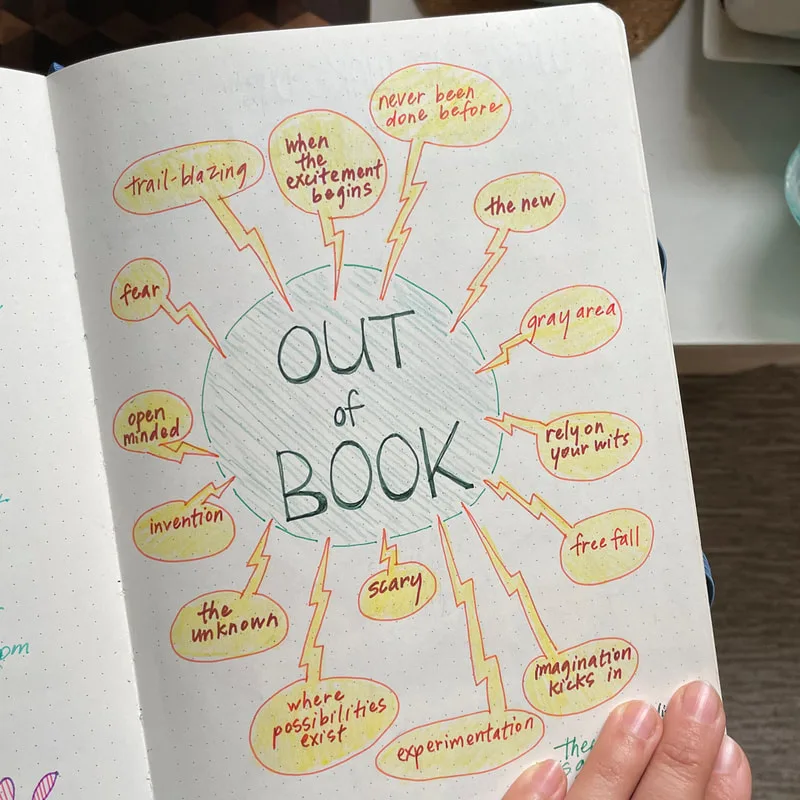 never been
done before
when
the
excitement
begins
trail-blazing
the new
fear
gray area
OUT
of
BOOK
open
minded
rely on
your wits
invention
free fall
the
unknown
scary
imagination
kicks in
where
possibilities
exist
experimentation